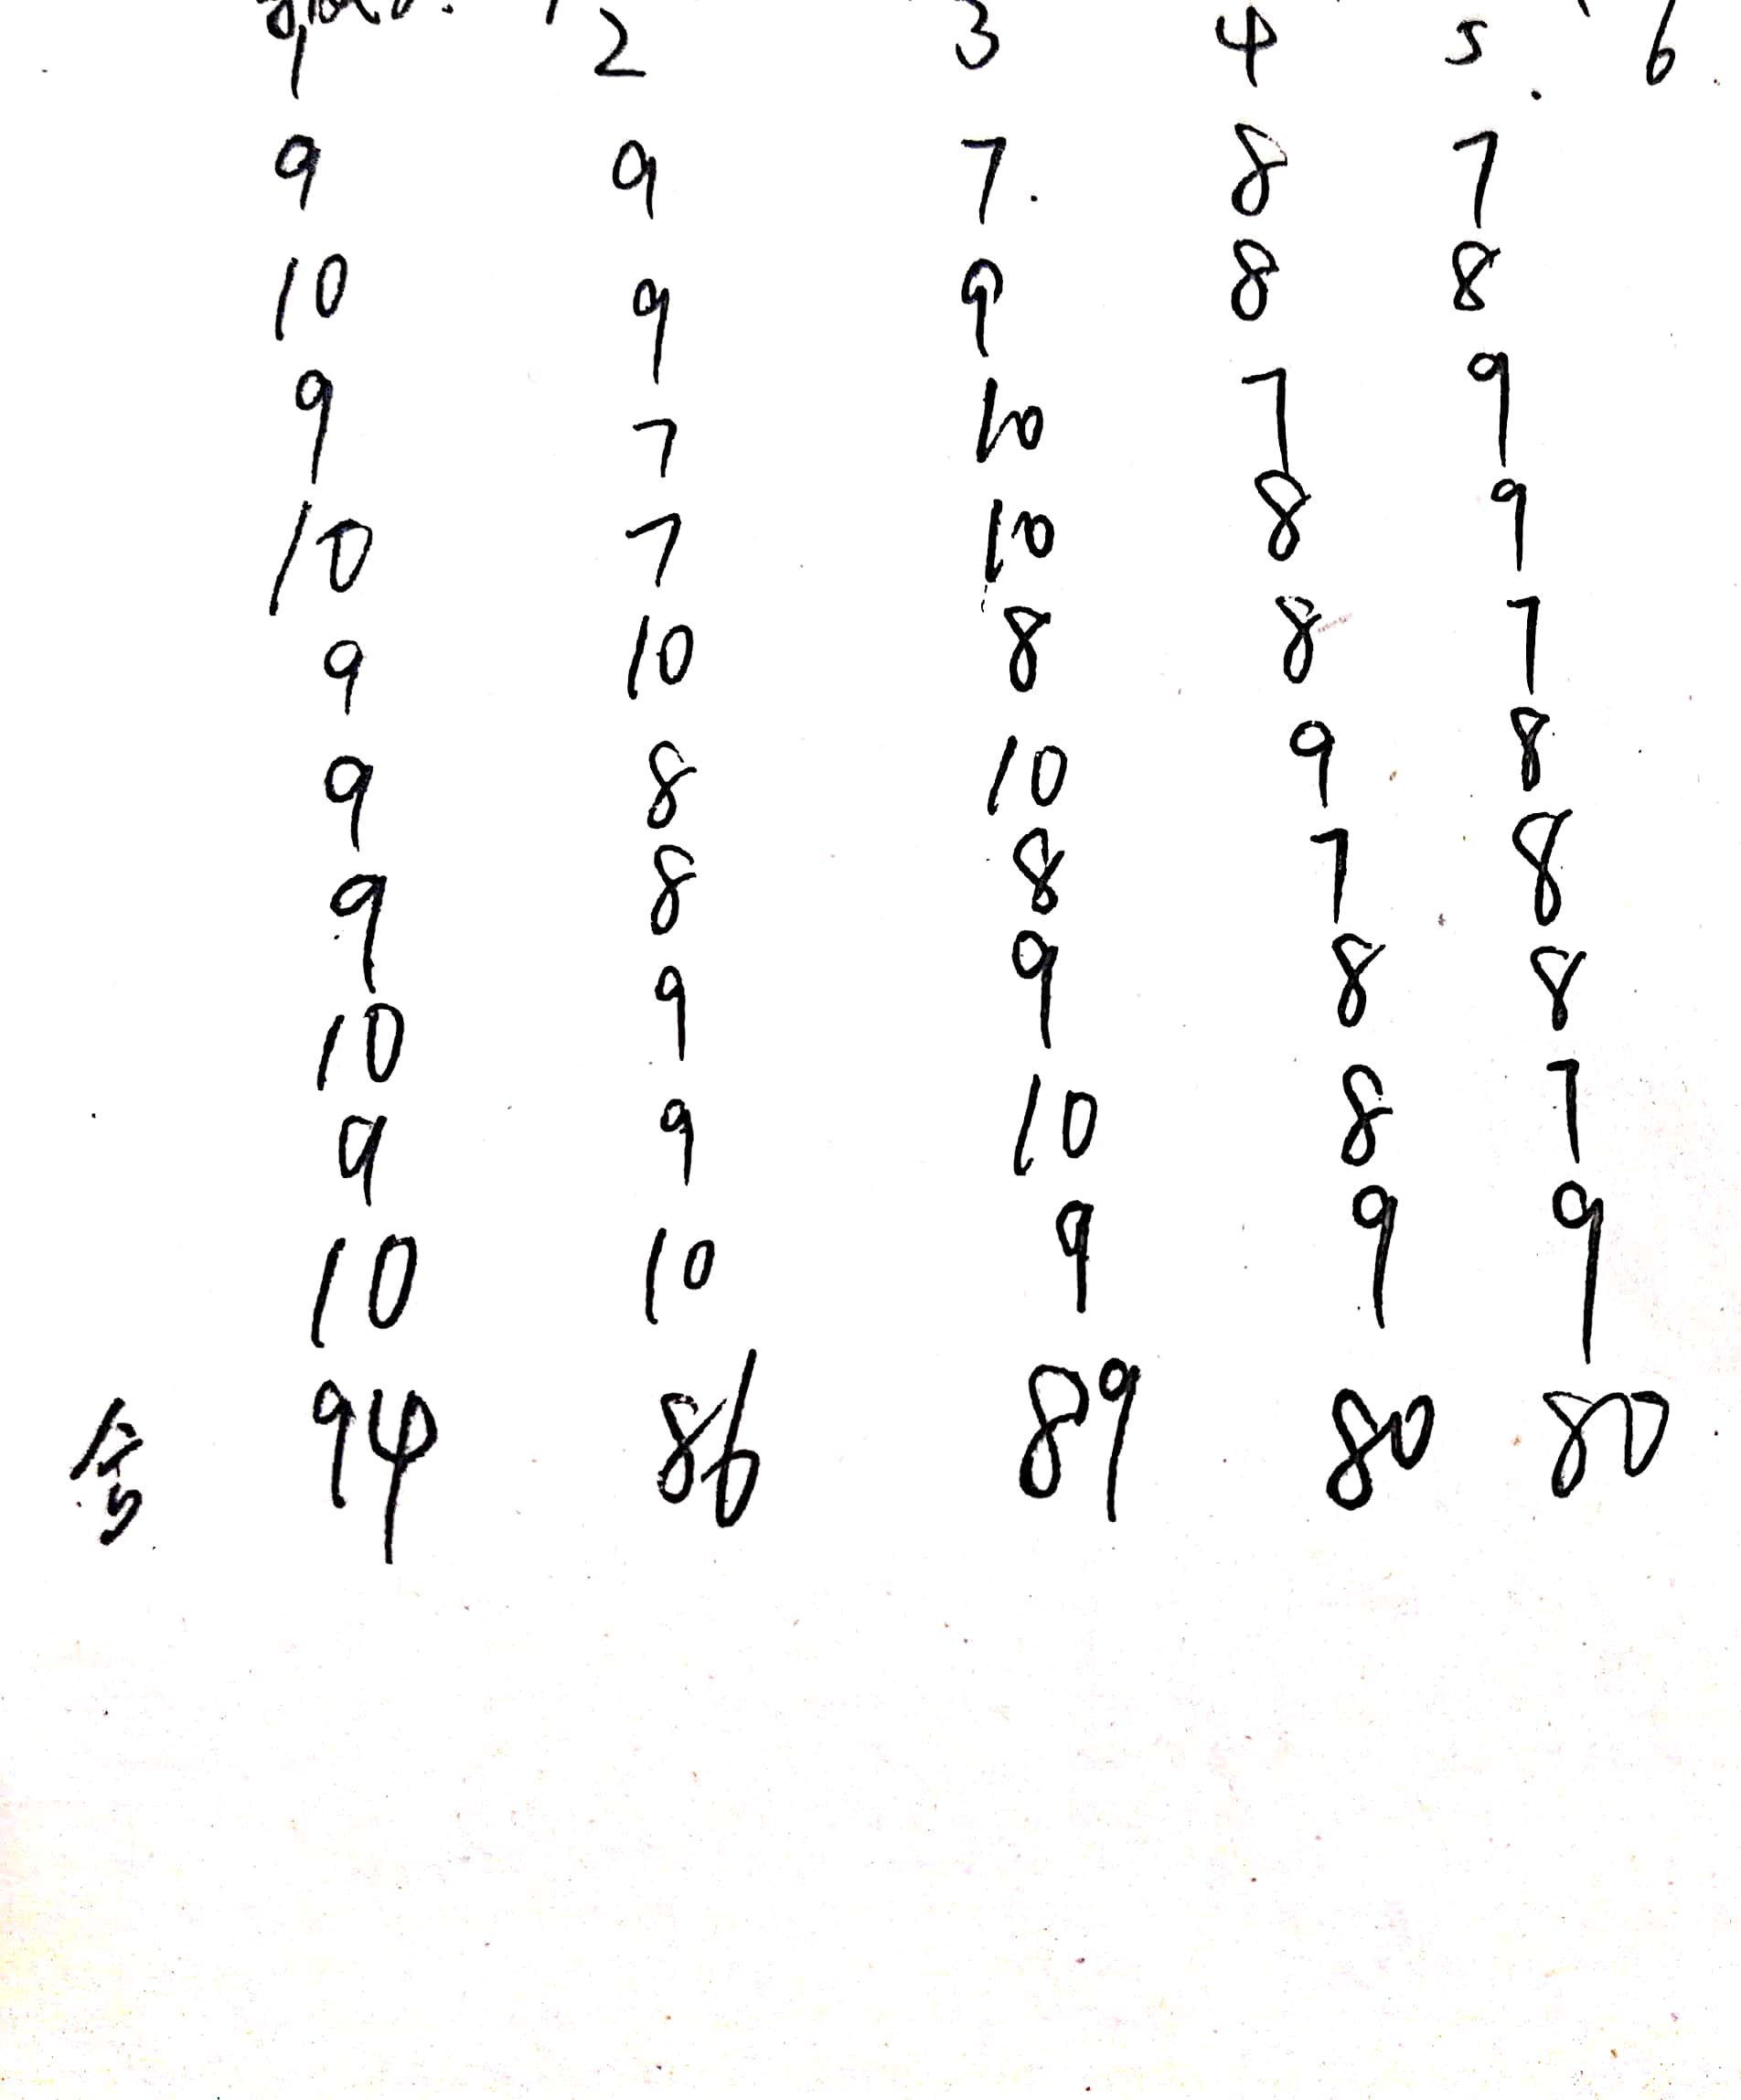 1 2 3 4 5. 6
9 9 7. 8 7
10 9 9 8 8
9 7 10 7 9
10 7 10 8 9
9 10 8 8 7
9 8 10 9 8
9 8 8 7 8
10 9 9 8 8
9 9 10 8 7
10 10 9 9 9
94 86 89 80 80